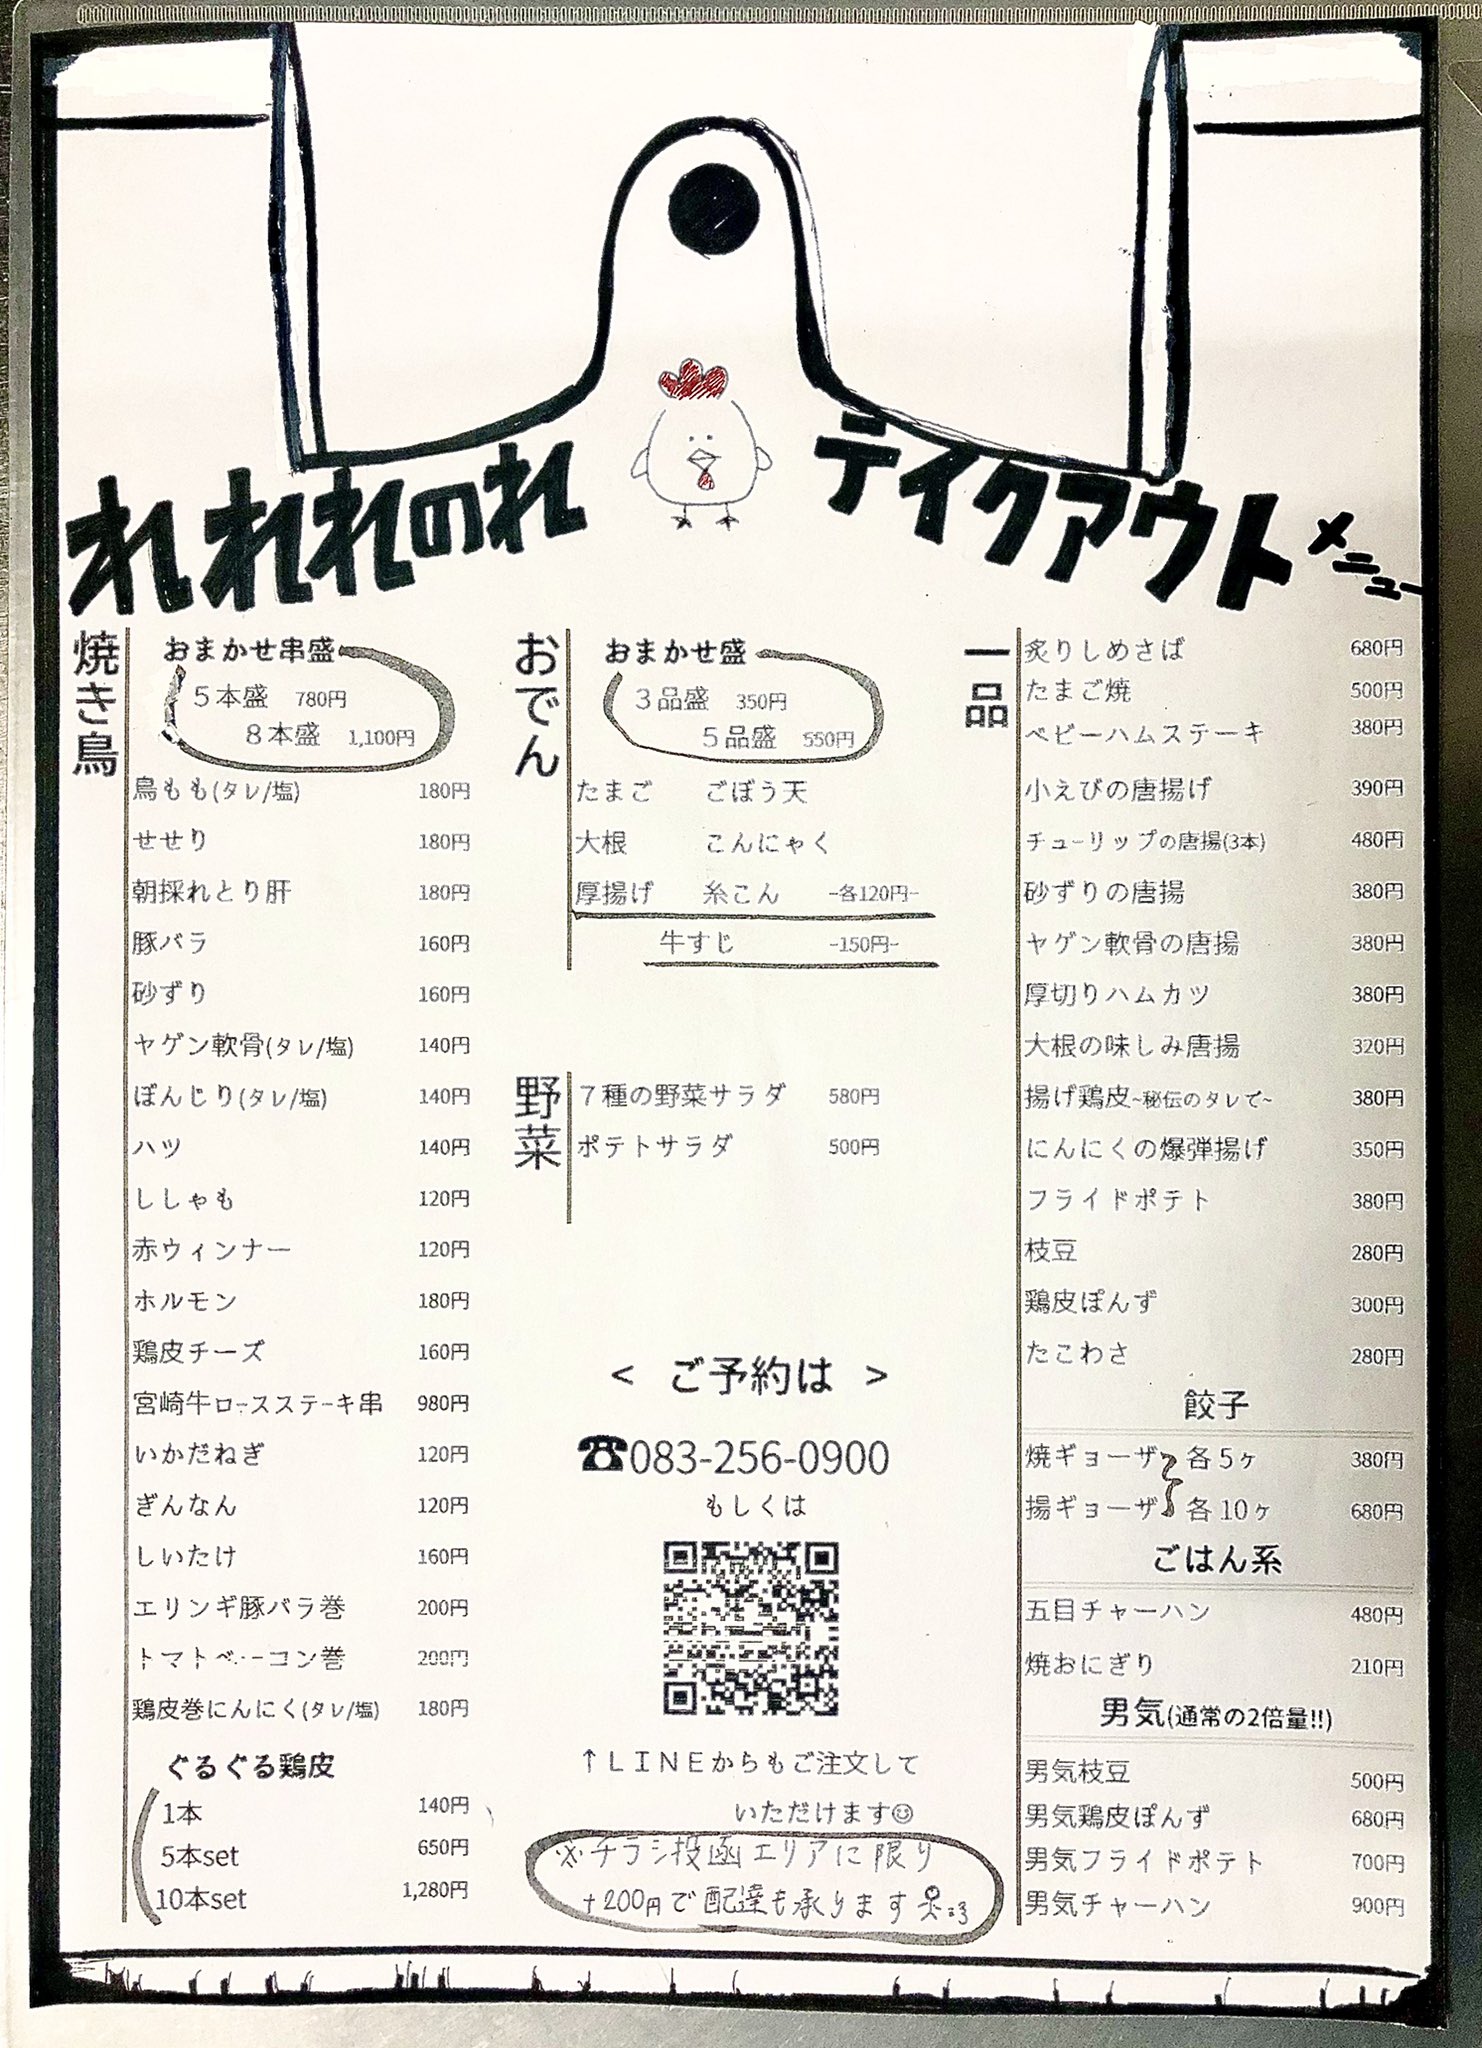 れれれのれ テイクアウトメニュー
焼き鳥
おまかせ串盛
5本盛 780円
8本盛 1,100円
鳥もも(タレ/塩) 180円
せせり 180円
朝採れとり肝 180円
豚バラ 160円
砂ずり 160円
ヤゲン軟骨(タレ/塩) 140円
ぼんじり(タレ/塩) 140円
ハツ 140円
ししゃも 120円
赤ウィンナー 120円
ホルモン 180円
鶏皮チーズ 160円
宮崎牛ロースステーキ串 980円
いかだねぎ 120円
ぎんなん 120円
しいたけ 160円
エリンギ豚バラ巻 200円
トマトベーコン巻 200円
鶏皮巻にんにく(タレ/塩) 180円
ぐるぐる鶏皮
1本 140円
5本set 650円
10本set 1,280円
おでん
おまかせ盛
3品盛 350円
5品盛 550円
たまご ごぼう天
大根 こんにゃく
厚揚げ 糸こん -各120円-
牛すじ -150円-
野菜
7種の野菜サラダ 580円
ポテトサラダ 500円
< ご予約は >
☎083-256-0900
もしくは
↑LINEからもご注文して
いただけます☺
※チラシ投函エリアに限り
+200円で配達も承ります
一品
炙りしめさば 680円
たまご焼 500円
ベビーハムステーキ 380円
小えびの唐揚げ 390円
チューリップの唐揚(3本) 480円
砂ずりの唐揚 380円
ヤゲン軟骨の唐揚 380円
厚切りハムカツ 380円
大根の味しみ唐揚 320円
揚げ鶏皮~秘伝のタレで~ 380円
にんにくの爆弾揚げ 350円
フライドポテト 380円
枝豆 280円
鶏皮ぽんず 300円
たこわさ 280円
餃子
焼ギョーザ 各5ヶ 380円
揚ギョーザ 各10ヶ 680円
ごはん系
五目チャーハン 480円
焼おにぎり 210円
男気(通常の2倍量!!)
男気枝豆 500円
男気鶏皮ぽんず 680円
男気フライドポテト 700円
男気チャーハン 900円